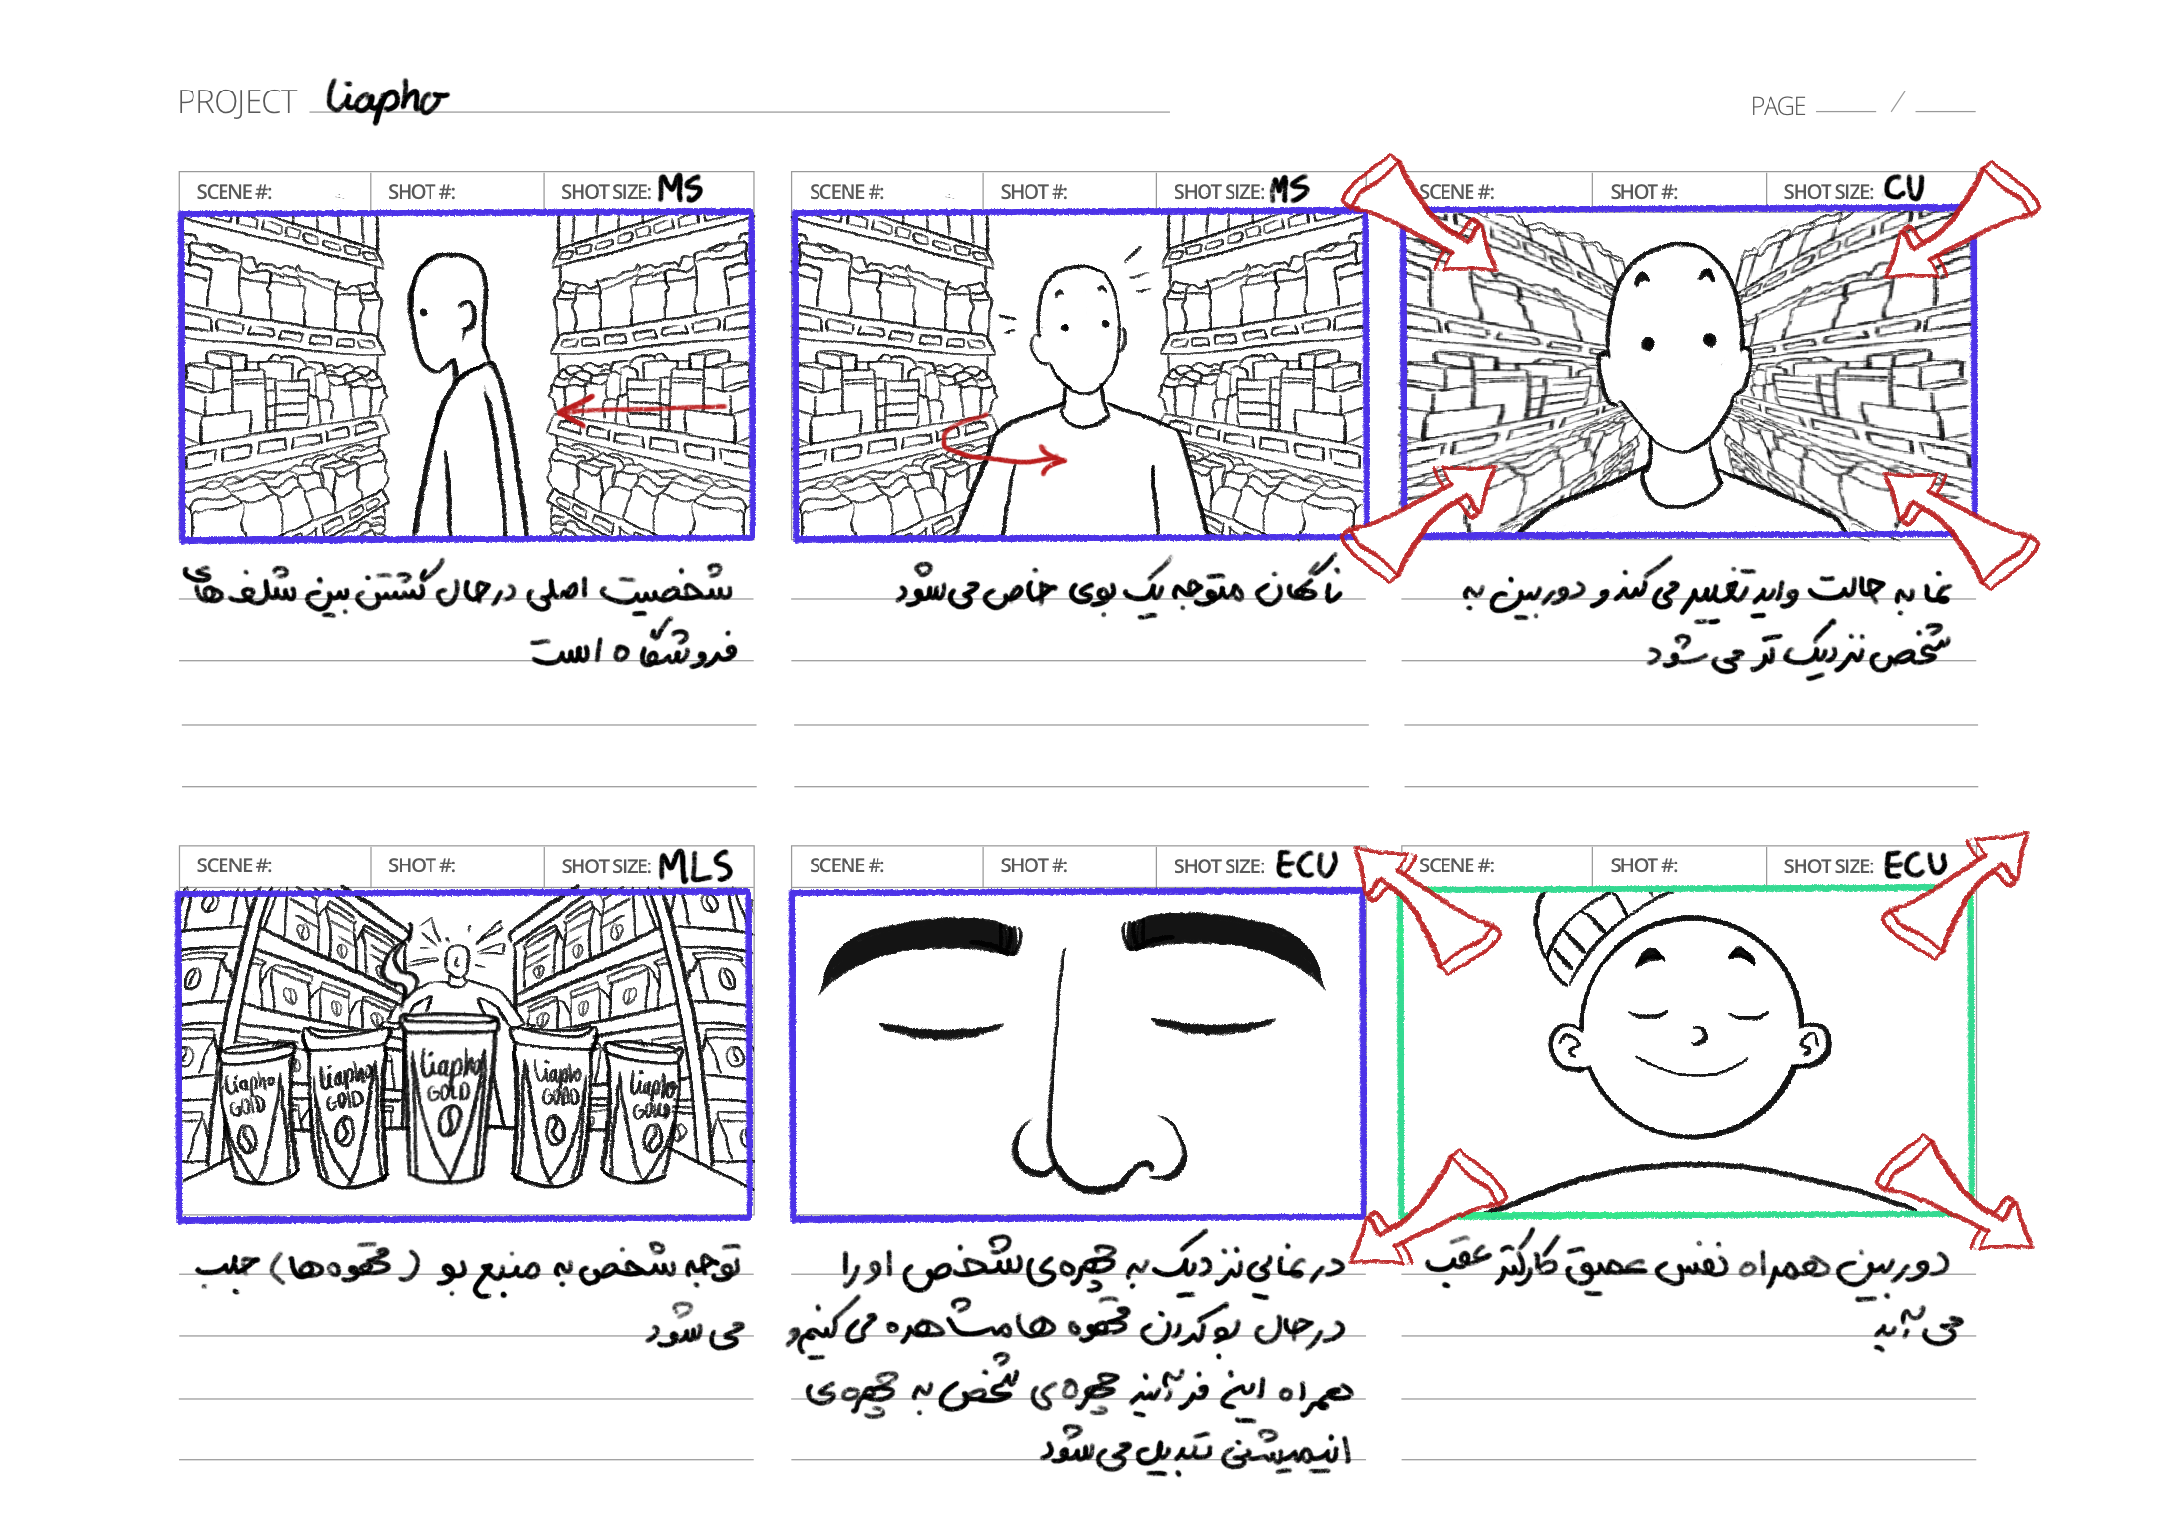 PROJECT Liapho
PAGE ____ / ____
SCENE #: SHOT #: SHOT SIZE: MS
شخصیت اصلی درحال گشتن بین شلف های
فروشگاه است
SCENE #: SHOT #: SHOT SIZE: MS
ناگهان متوجه یک بوی خاص می شود
SCENE #: SHOT #: SHOT SIZE: CU
نما به حالت واید تغییر می کند و دوربین به
شخص نزدیک تر می شود
SCENE #: SHOT #: SHOT SIZE: MLS
Liapho
GOLD
Liapho
GOLD
Liapho
GOLD
Liapho
GOLD
Liapho
GOLD
توجه شخص به منبع بو (قهوه ها) جلب
می شود
SCENE #: SHOT #: SHOT SIZE: ECU
در نمایی نزدیک به چهره ی شخص او را
درحال بو کردن قهوه ها مشاهده می کنیم و
همراه این فرآیند چهره ی شخص به چهره ی
انیمیشنی تبدیل می شود
SCENE #: SHOT #: SHOT SIZE: ECU
دوربین همراه نفس عمیق کارکتر عقب
می آید